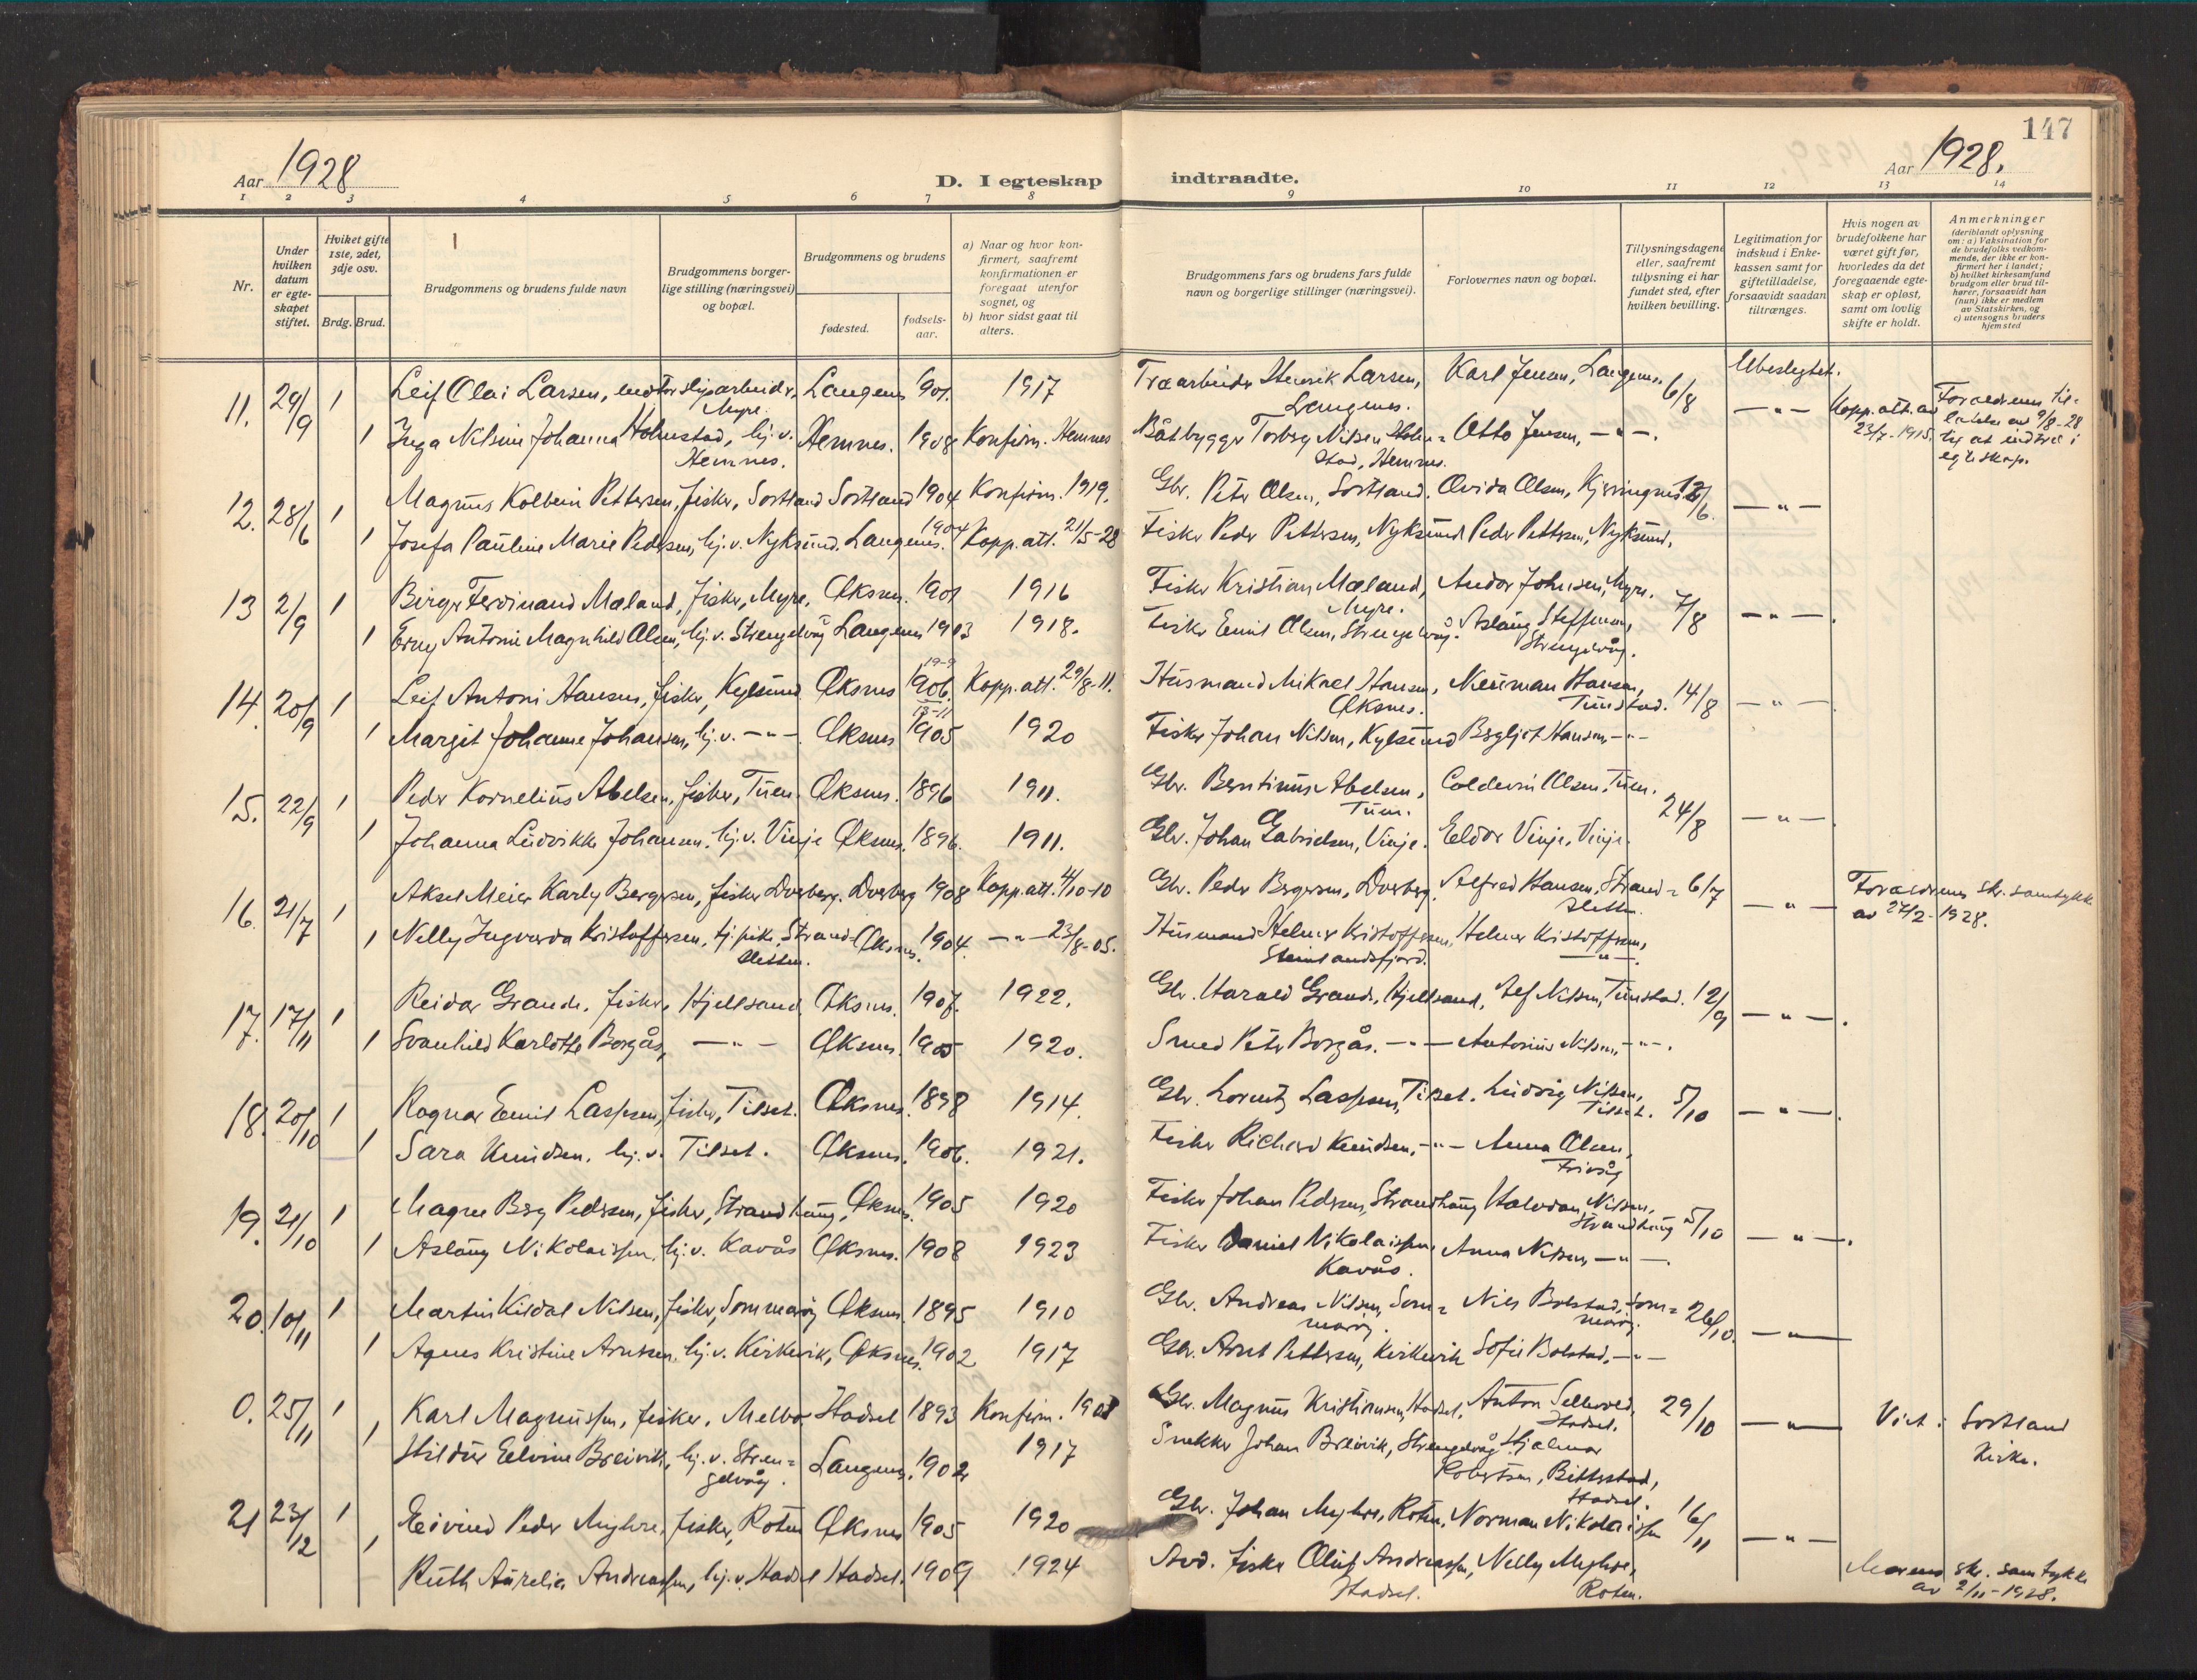 147
Aar 1928
D. I egteskap
indtraadte.
Aar 1928.
1 2 3 4 5 6 7 8 9 10 11 12 13 14
Nr.
Under hvilken datum er egteskapet stiftet.
Hviket gifte 1ste, 2det, 3dje osv.
Brdg. Brud.
Brudgommens og brudens fulde navn
Brudgommens borgerlige stilling (næringsvei) og bopæl.
Brudgommens og brudens
fødested.
fødselsaar.
a) Naar og hvor konfirmert, saafremt konfirmationen er foregaat utenfor sognet, og
b) hvor sidst gaat til alters.
Brudgommens fars og brudens fars fulde navn og borgerlige stillinger (næringsvei).
Forlovernes navn og bopæl.
Tillysningsdagene eller, saafremt tillysning ei har fundet sted, efter hvilken bevilling.
Legitimation for indskud i Enkekassen samt for giftetilladelse, forsaavidt saadan tiltrænges.
Hvis nogen av brudefolkene har været gift før, hvorledes da det foregaaende egteskap er opløst, samt om lovlig skifte er holdt.
Anmerkninger (deriblandt oplysning om: a) Vaksination for de brudefolks vedkommende, der ikke er konfirmert her i landet; b) hvilket kirkesamfund brudgom eller brud tilhører, forsaavidt han (hun) ikke er medlem av Statskirken, og c) utensogns bruders hjemsted
11. 29/9 1 Leif Olai Larsen, Myre. Langenes 1901. 1917 Træarbeider Henrik Larsen, Langenes. Karl Jensen, Langenes. 6/8 Ubeslegtet.
1 Inga Nilsine Johanna Holmstad, hj. v. Hemnes. Hemnes. 1908 Konfirm. Hemnes Båtbygger Torberg Nilsen Holmstad, Hemnes. Otto Jensen, -"-. -"- Kopp. att. av 23/7-1915. Forældrenes tilladelse av 9/8-28 til at indtræ i egteskap.
12. 28/6 1 Magnus Kolbein Pettersen, fisker, Sortland Sortland 1904 Konfirm. 1919. Gbr. Peter Olsen, Sortland. Ovida Olsen, Kjerringnes /6. -"-
1 Josefa Pauline Marie Pedersen, hj. v. Nyksund. Langenes. 1904 Kopp. att. 21/5-28 Fisker Peder Pettersen, Nyksund Peder Pettersen, Nyksund.
13 2/9 1 Birger Ferdinand Mæland, fisker, Myre. Øksnes. 1901 1916 Fisker Kristian Mæland, Myre. Andor Johnsen, Myre. 7/8 -"-.
1 Erny Antonie Magnhild Olsen, hj. v. Strengelvåg Langenes 1903 1918. Fisker Emil Olsen, Strengelvåg. Aslaug Steffensen, Strengelvåg.
14. 20/9 1 Leif Antoni Hansen, fisker, Kylsund Øksnes 19-9 1906. Kopp. att. 29/8-11. Husmand Mikael Hansen, Øksnes. Neuman Hansen, Tunstad. 14/8 -"-.
1 Margit Johanne Johansen, hj. v. -"- Øksnes 13-11 1905 1920 Fisker Johan Nilsen, Kylsund Bergljot Hansen -"-
15. 22/9 1 Peder Kornelius Abelsen, fisker, Tuen. Øksnes. 1896 1911. Gbr. Berntinus Abelsen, Tuen. Olsen, Tuen. 24/8 -"-.
1 Johanna Ludvikke Johansen. hj. v. Vinje Øksnes. 1896. 1911. Gbr. Johan Gabrielsen, Vinje. Eldor Vinje, Vinje.
16. 21/7 1 Aksel Meier Karly Bergersen, fisker Dverberg. Dverberg 1908 Kopp. att. 4/10-10 Gbr. Peder Bergersen, Dverberg. Alfred Hansen, Strandsletten. 6/7 -"- Forældrenes skr. samtykke av 27/2-1928.
1 Nelly Ingvarda Kristoffersen, tj. pike, Strandsletten. Øksnes. 1904. -"- 23/8-05. Husmand Helmer Kristoffersen, Steinlandsfjord. Helmer Kristoffersen, -"-.
17. 17/11 1 Reidar Grande, fisker, Hjellsand Øksnes. 1907. 1922. Gbr. Harald Grande, Hjellsand, Alf Nilsen, Tunstad. 12/9 -"-.
1 Svanhild Karlotte Borgås, -"- Øksnes. 1905 1920. Smed Peter Borgås. -"- Antonius Nilsen, -"-.
18. 20/10 1 Ragnar Emil Laspsen, fisker, Tilset. Øksnes. 1898 1914. Gbr. Lorentz Laspsen, Tilset. Ludvig Nilsen, Tilset. 5/10 -"-.
1 Sara Knudsen. hj. v. Tilset. Øksnes. 1906. 1921. Fisker Richard Knudsen, -"- Anna Olsen,
19. 21/10 1 Magne Berg Pedersen, fisker, Strandhaug, Øksnes. 1905 1920 Fisker Johan Pedersen, Strandhaug Halvdan Nilsen, Strandhaug 5/10 -"-.
1 Aslaug Nikolaissen. hj. v. Kavås Øksnes. 1908 1923 Fisker Daniel Nikolaissen, Kavås. Anna Nilsen, -"-.
20. 10/11 1 Martin Kildal Nilsen, fisker, Sommarøy Øksnes. 1895 1910 Gbr. Andreas Nilsen, Sommarøy. Nils Bolstad, Sommarøy. 26/10. -"-
1 Agnes Kristine Arntsen. hj. v. Kirkevik, Øksnes. 1902 1917 Gbr. Arnt Pettersen, Kirkevik Sofie Bolstad, -"-
0. 25/11 1 Karl Magnussen, fisker, Melbo Hadsel 1893 Konfirm. 1908 Gbr. Magnus Kristiansen, Hadsel. Anton Hadsel. 29/10 -"- Viet i Sortland Kirke.
1 Hildur Elvine Breivik, hj. v. Strengelvåg. Langenes. 1902 1917 Snekker Johan Breivik, Strengelvåg Hjalmar Robertsen, Bitterstad, Hadsel.
21 23/12 1 Eivind Peder Myhre, fisker, Roten Øksnes 1905 1920 Gbr. Johan Myhre, Roten. Norman Nikolaissen 16/11 -"-
1 Ruth Aurelia Andreassen, hj. v. Hadsel Hadsel. 1909 1924 Avd. fisker Oluf Andreassen, Hadsel. Nelly Myhre, Roten. Morens skr. samtykke av 2/11-1928.